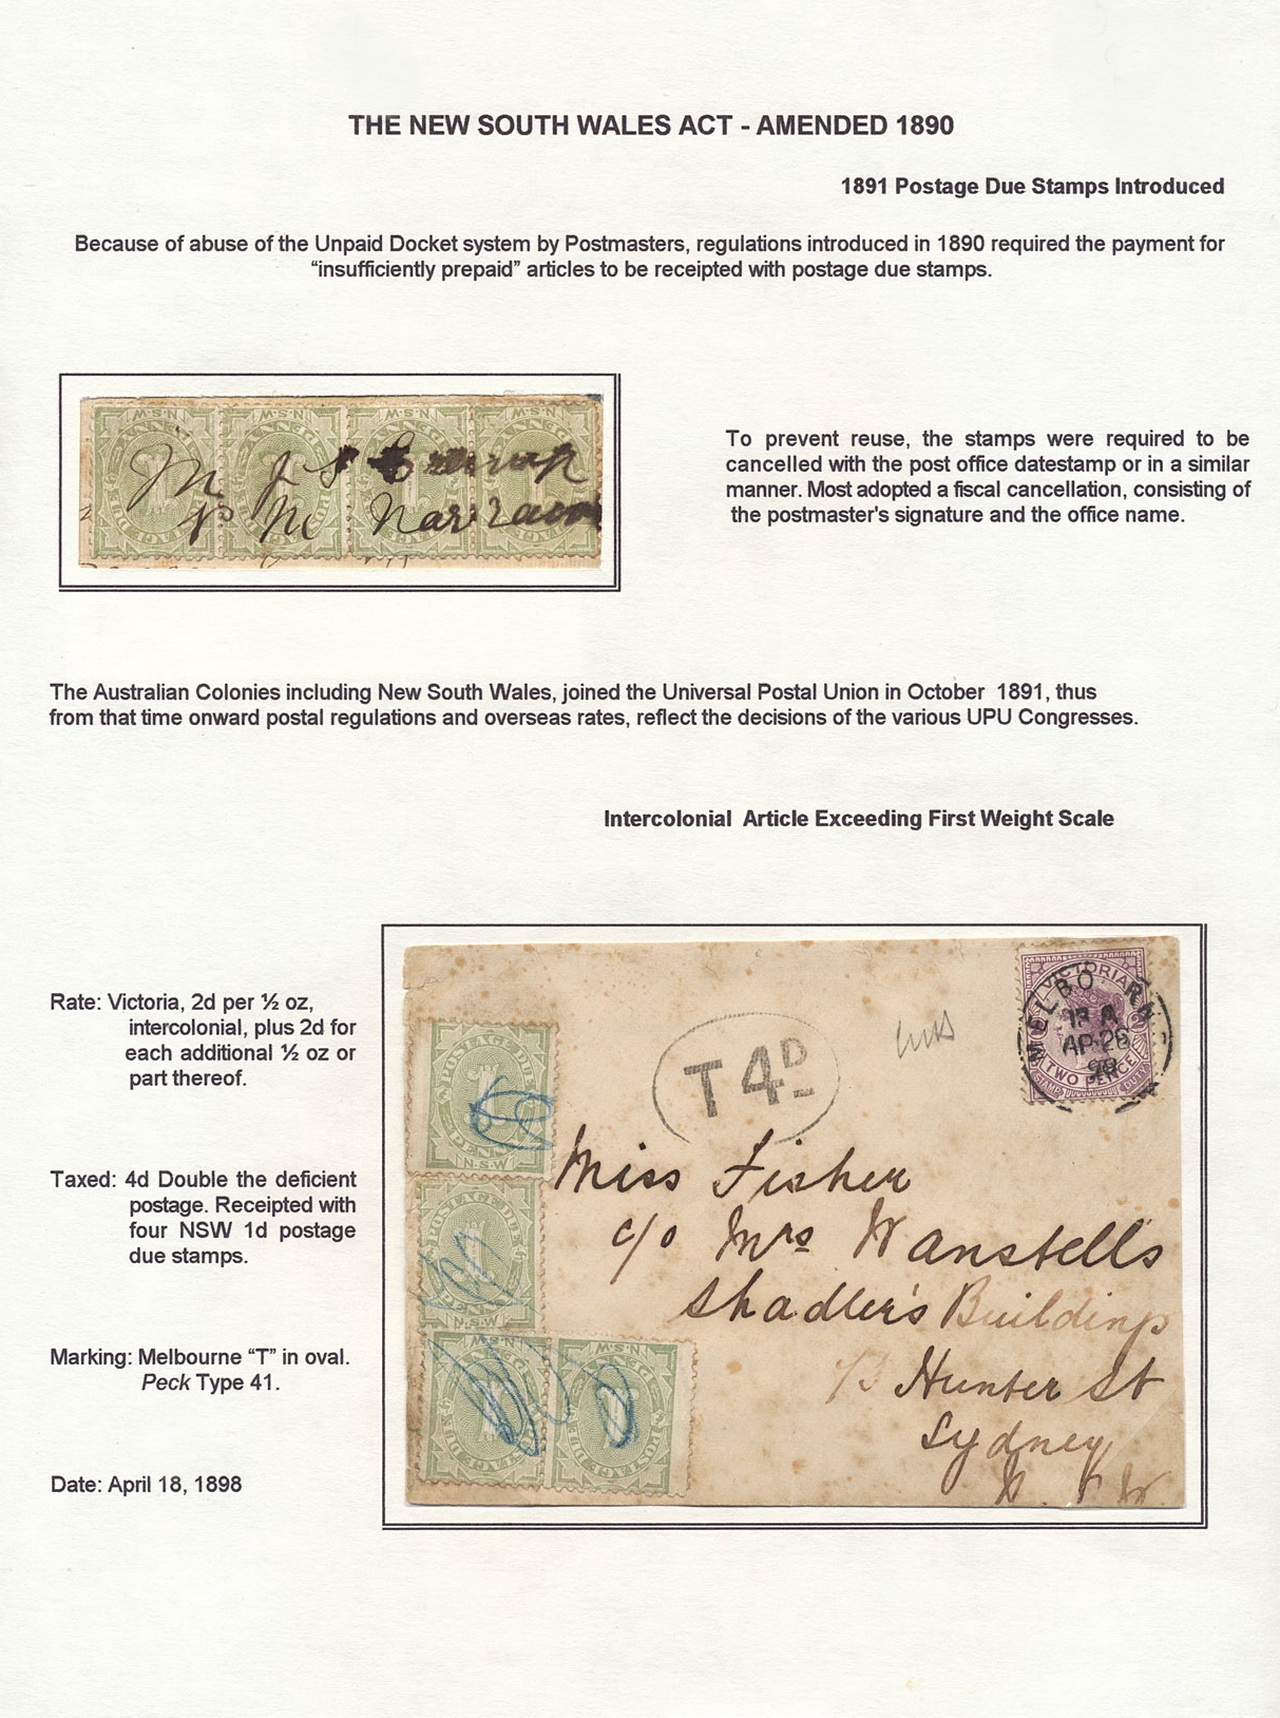 THE NEW SOUTH WALES ACT - AMENDED 1890
1891 Postage Due Stamps Introduced
Because of abuse of the Unpaid Docket system by Postmasters, regulations introduced in 1890 required the payment for
“insufficiently prepaid” articles to be receipted with postage due stamps.
N.S.W. N.S.W. N.S.W. N.S.W.
M J S
P M
To prevent reuse, the stamps were required to be
cancelled with the post office datestamp or in a similar
manner. Most adopted a fiscal cancellation, consisting of
the postmaster's signature and the office name.
The Australian Colonies including New South Wales, joined the Universal Postal Union in October 1891, thus
from that time onward postal regulations and overseas rates, reflect the decisions of the various UPU Congresses.
Intercolonial Article Exceeding First Weight Scale
Rate: Victoria, 2d per ½ oz,
intercolonial, plus 2d for
each additional ½ oz or
part thereof.
Taxed: 4d Double the deficient
postage. Receipted with
four NSW 1d postage
due stamps.
Marking: Melbourne “T” in oval.
Peck Type 41.
Date: April 18, 1898
VICTORIA
TWO PENCE
STAMP DUTY
AP 26
98
T 4D
POSTAGE DUE
PENNY
N.S.W
POSTAGE DUE
PENNY
N.S.W
N.S.W N.S.W
Miss Fisher
c/o Mrs Wanstells
Shadler's Buildings
Hunter St
Sydney
N. S. W.